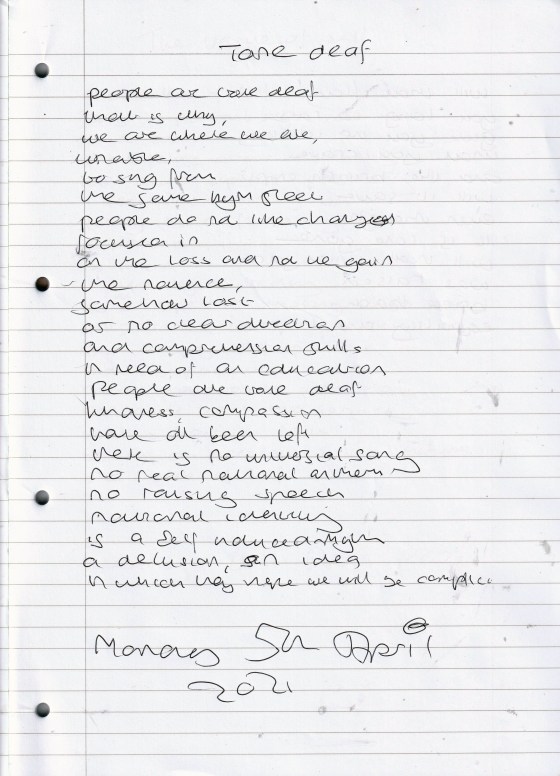 Tone deaf
people are tone deaf
that is why,
we are where we are,
unable,
to sing from
the same hym sheet
people do not like changes
focused in
on the loss and not the gain
the nonence,
somehow lost
as no clear direction
and comprehension skills
in need of an education
People are tone deaf
kindness, compassion
have all been left
there is no universal song
no real national anthem
no rousing speech
national identity
is a self induced
a delusion, an idea
in which they hope we will be complicit
Monday 5th April
2021